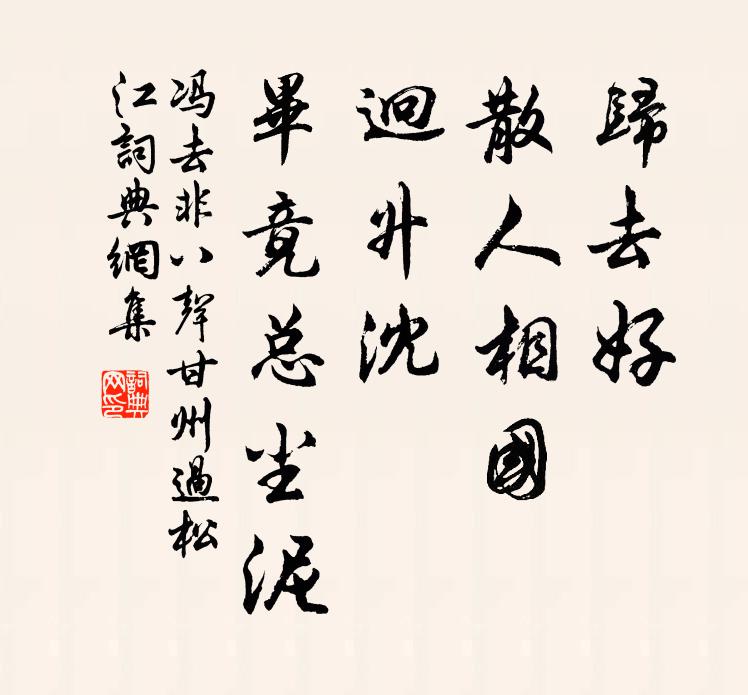 歸去好
散人相國
迥升沈
畢竟总尘泥
冯去非八聲甘州過松
江詞典網集
詞典网印